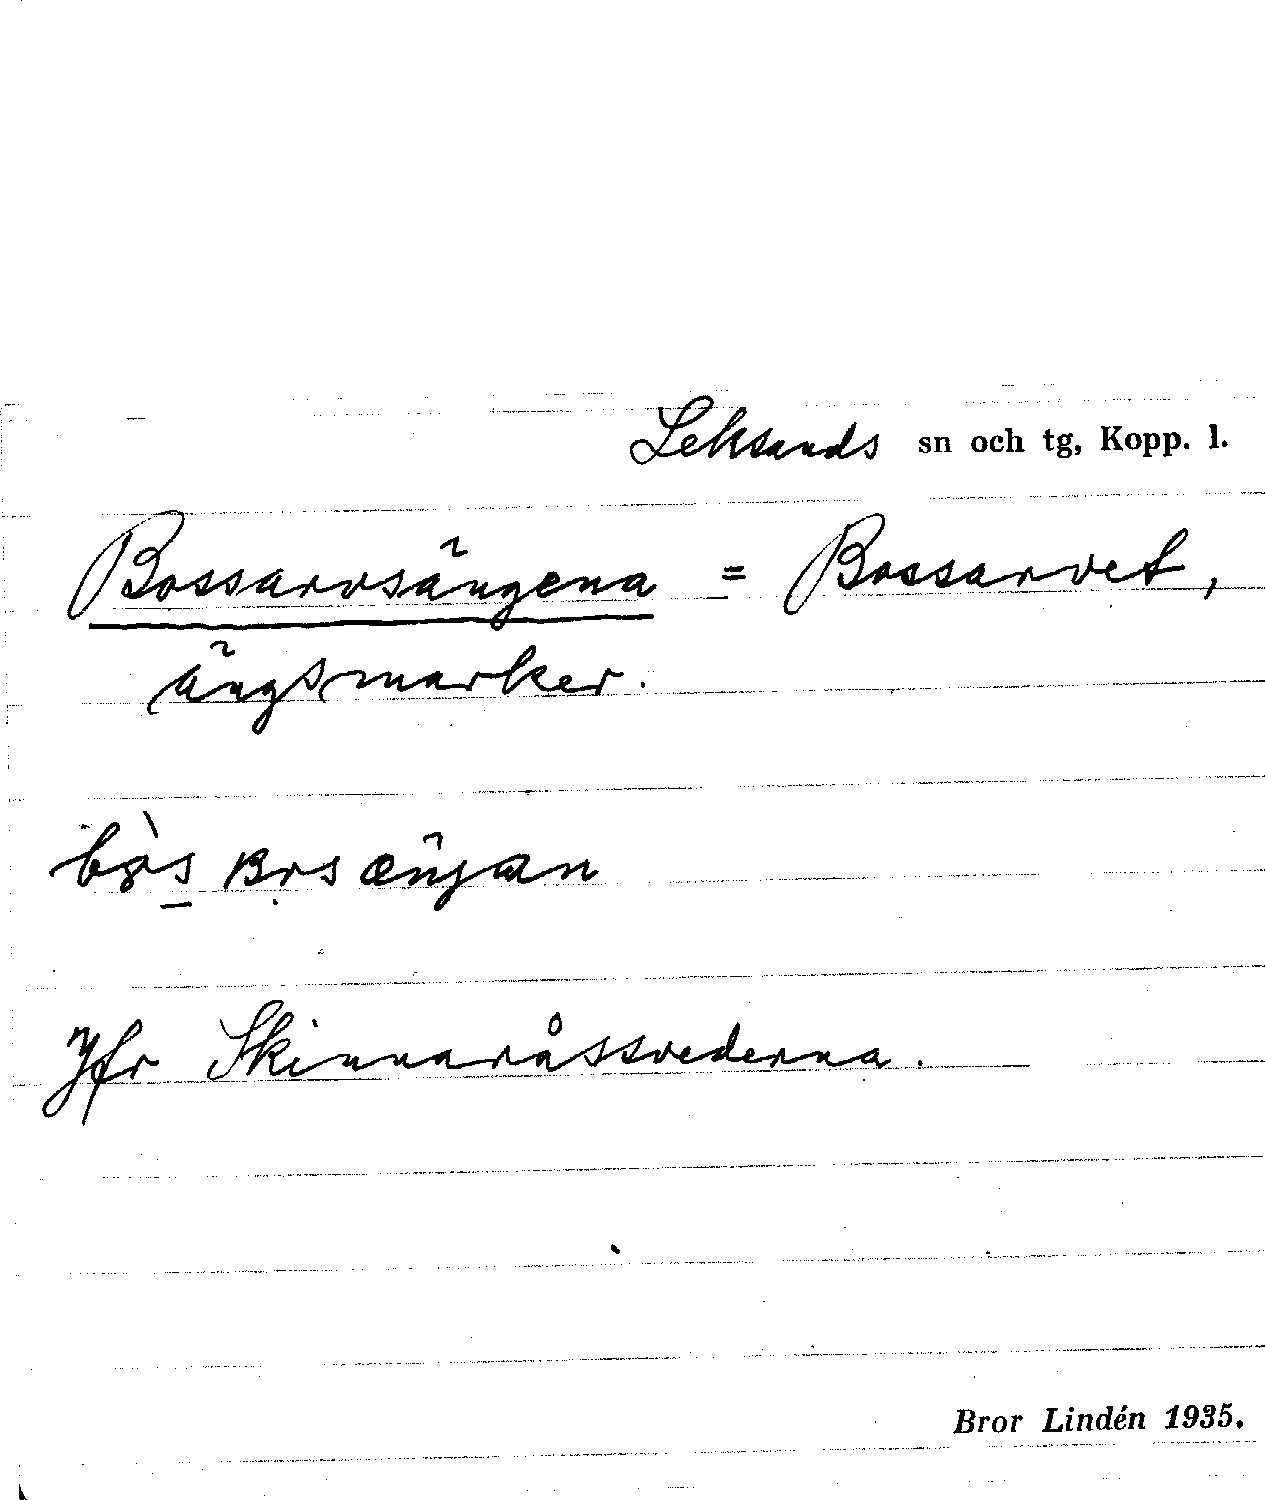 Leksands sn och tg, Kopp. l.
Bossarvsängena = Bossarvet,
ängsmarker.
Jfr Skinnaråssvederna.
Bror Lindén 1935.